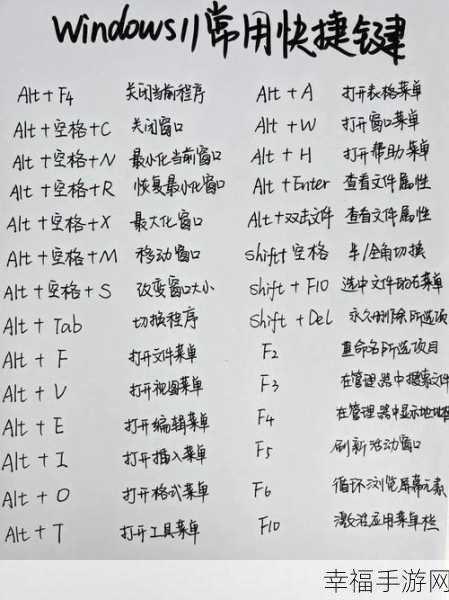 Windows11常用快捷键
Alt + F4 关闭当前程序
Alt +空格+C 关闭窗口
Alt +空格+N 最小化当前窗口
Alt +空格+R 恢复最小化窗口
Alt +空格+X 最大化窗口
Alt +空格+M 移动窗口
Alt +空格+S 改变窗口大小
Alt + Tab 切换程序
Alt + F 打开文件菜单
Alt + V 打开视图菜单
Alt + E 打开编辑菜单
Alt + I 打开插入菜单
Alt + O 打开格式菜单
Alt + T 打开工具菜单
Alt + A 打开表格菜单
Alt + W 打开窗口菜单
Alt + H 打开帮助菜单
Alt +Enter 查看文件属性
Alt+双击文件 查看文件属性
shift+空格 半/全角切换
shift + F10 选中文件的右菜单
shift + Del 永久删除所选项
F2 重命名所选项目
F3 在管理器中搜索文件
F4 在管理器中显示地址
F5 刷新活动窗口
F6 循环浏览屏幕元素
F10 激活应用菜单栏
幸福手游网